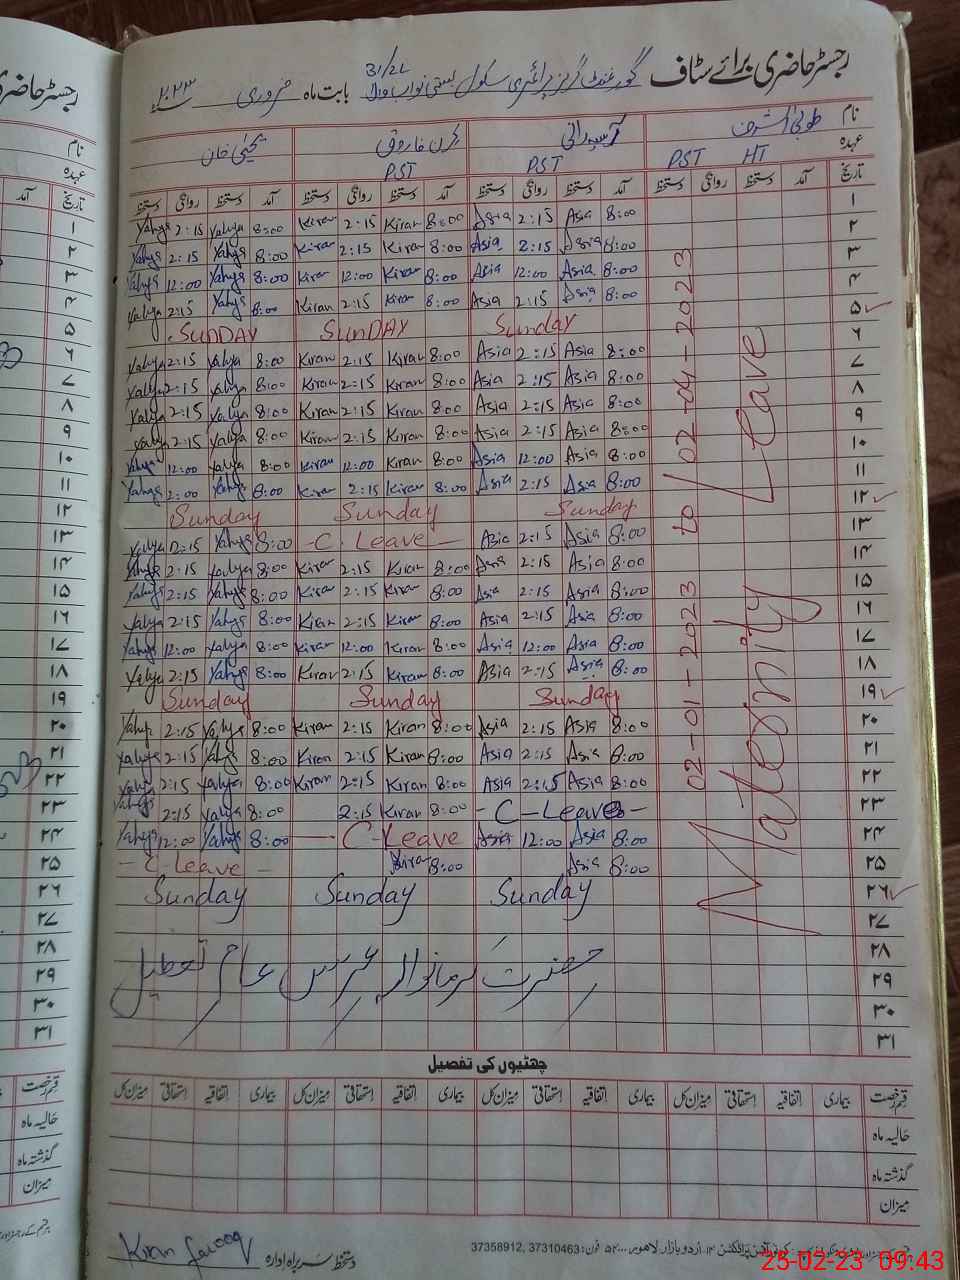 رجسٹر حاضری برائے سٹاف گورنمنٹ گرلز پرائمری سکول بستی نواب والا 31/2L بابت ماہ فروری ۲۰۲۳
نام طوبیٰ اشرف آسیہ رانی کرن فاروق یحییٰ خان
عہدہ HT PST PST PST
تاریخ آمد دستخط روانگی دستخط آمد دستخط روانگی دستخط آمد دستخط روانگی دستخط آمد دستخط روانگی دستخط
۱ 8:00 Asia 2:15 Asia 8:00 Kiran 2:15 Kiran 8:00 Yahya 2:15 Yahya
۲ 8:00 Asia 2:15 Asia 8:00 Kiran 2:15 Kiran 8:00 Yahya 2:15 Yahya
۳ 8:00 Asia 12:00 Asia 8:00 Kiran 12:00 Kiran 8:00 Yahya 12:00 Yahya
۴ 8:00 Asia 2:15 Asia 8:00 Kiran 2:15 Kiran 8:00 Yahya 2:15 Yahya
۵ Sunday SunDAY SUNDAY
۶ 8:00 Asia 2:15 Asia 8:00 Kiran 2:15 Kiran 8:00 Yahya 2:15 Yahya
۷ 8:00 Asia 2:15 Asia 8:00 Kiran 2:15 Kiran 8:00 Yahya 2:15 Yahya
۸ 8:00 Asia 2:15 Asia 8:00 Kiran 2:15 Kiran 8:00 Yahya 2:15 Yahya
۹ 8:00 Asia 2:15 Asia 8:00 Kiran 2:15 Kiran 8:00 Yahya 2:15 Yahya
۱۰ 8:00 Asia 12:00 Asia 8:00 Kiran 12:00 Kiran 8:00 Yahya 12:00 Yahya
۱۱ 8:00 Asia 2:15 Asia 8:00 Kiran 2:15 Kiran 8:00 Yahya 2:00 Yahya
۱۲ Sunday Sunday Sunday
۱۳ 8:00 Asia 2:15 Asia - C. Leave - 8:00 Yahya 12:15 Yahya
۱۴ 8:00 Asia 2:15 Asia 8:00 Kiran 2:15 Kiran 8:00 Yahya 2:15 Yahya
۱۵ 8:00 Asia 2:15 Asia 8:00 Kiran 2:15 Kiran 8:00 Yahya 2:15 Yahya
۱۶ 8:00 Asia 2:15 Asia 8:00 Kiran 2:15 Kiran 8:00 Yahya 2:15 Yahya
۱۷ 8:00 Asia 12:00 Asia 8:00 Kiran 12:00 Kiran 8:00 Yahya 12:00 Yahya
۱۸ 8:00 Asia 2:15 Asia 8:00 Kiran 2:15 Kiran 8:00 Yahya 2:15 Yahya
۱۹ Sunday Sunday Sunday
۲۰ 8:00 Asia 2:15 Asia 8:00 Kiran 2:15 Kiran 8:00 Yahya 2:15 Yahya
۲۱ 8:00 Asia 2:15 Asia 8:00 Kiran 2:15 Kiran 8:00 Yahya 2:15 Yahya
۲۲ 8:00 Asia 2:15 Asia 8:00 Kiran 2:15 Kiran 8:00 Yahya 2:15 Yahya
۲۳ - C-Leave - 8:00 Kiran 2:15 8:00 Yahya 2:15 Yahya
۲۴ 8:00 Asia 12:00 Asia - C-Leave 8:00 Yahya 12:00 Yahya
۲۵ 8:00 Asia 8:00 Kiran - C-Leave -
۲۶ Sunday Sunday Sunday
۲۷
۲۸
۲۹ حضرت کرمانوالہ عرس عام تعطیل
۳۰
۳۱
Maternity Leave
02-01-2023 to 02-04-2023
چھٹیوں کی تفصیل
قسم رخصت بیماری اتفاقیہ استحقاقی میزان کل بیماری اتفاقیہ استحقاقی میزان کل بیماری اتفاقیہ استحقاقی میزان کل بیماری اتفاقیہ استحقاقی میزان کل
حالیہ ماہ
گذشتہ ماہ
میزان
دستخط سربراہ ادارہ Kiran farooq
اردو بازار لاہور فون: 37310463, 37358912
رجسٹر حاضری
نام
عہدہ
تاریخ آمد
۱
۲
۳
۴
۵
۶
۷
۸
۹
۱۰
۱۱
۱۲
۱۳
۱۴
۱۵
۱۶
۱۷
۱۸
۱۹
۲۰
۲۱
۲۲
۲۳
۲۴
۲۵
۲۶
۲۷
۲۸
۲۹
۳۰
۳۱
قسم رخصت
حالیہ ماہ
گذشتہ ماہ
میزان
25-02-23 09:43